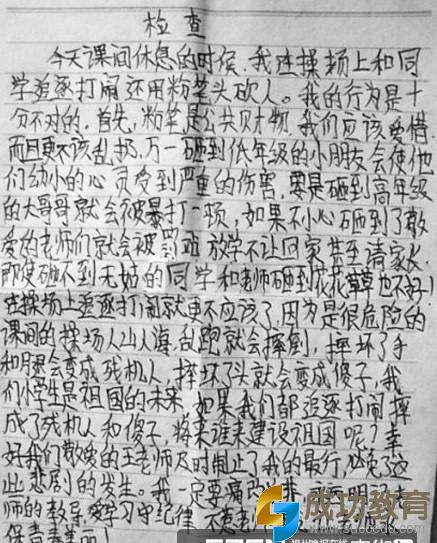 检查
今天课间休息的时候,我在操场上和同
学追逐打闹还用粉笔头砍人。我的行为是十
分不对的,首先,粉笔是公共财物,我们应该爱惜
而且更不该乱扔,万一砸到低年级的小朋友会使他
们幼小的心灵受到严重的伤害,要是砸到高年级
的大哥哥就会被暴打一顿,如果不小心砸到了敬
爱的老师们就会被罚站 放学不让回家甚至请家长
即使砸不到无辜的同学和老师砸到花花草草也不好!
在操场上追逐打闹就更不应该了,因为是很危险的
课间的操场人山人海,乱跑就会摔倒,摔坏了手
和腿会变成残机人,摔坏了头就会变成傻子,我
们小学生是祖国的未来,如果我们都追逐打闹摔
成了残机人和傻子,将来谁来建设祖国呢?幸
好我们敬爱的王老师及时制止了我的罪行,避免了这
些悲剧的发生。我一定要痛改
师的教导
学习中纪律
成功教育